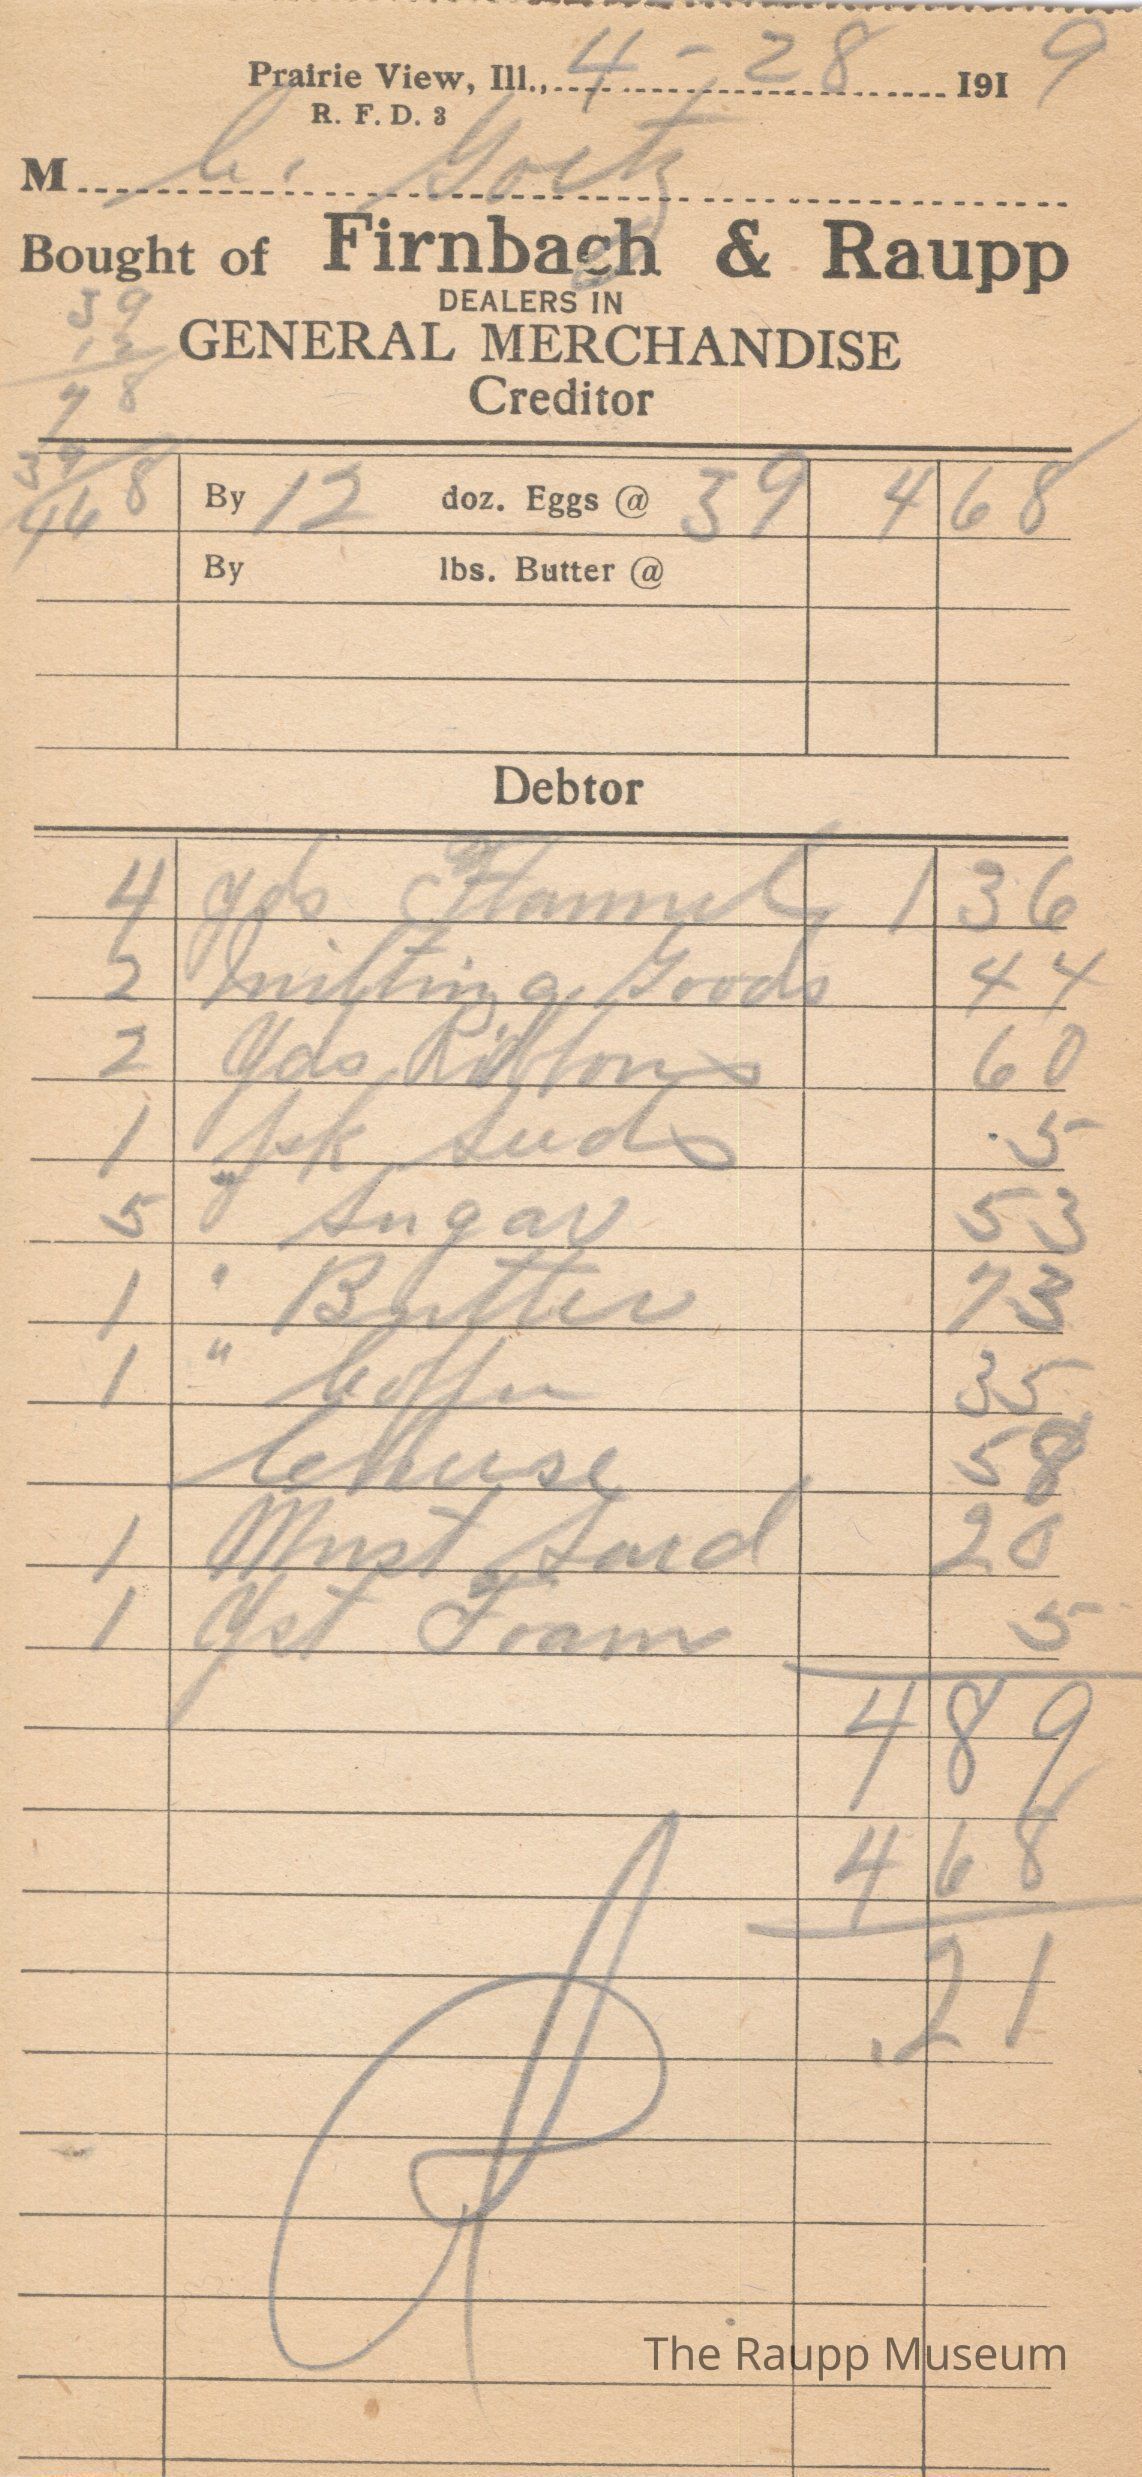 Prairie View, Ill., 4 - 28 1919
R. F. D. 3
M C. Goetz
Bought of Firnbach & Raupp
DEALERS IN
GENERAL MERCHANDISE
Creditor
39
12
78
39
468
By 12 doz. Eggs @ 39 4 68
By lbs. Butter @
Debtor
4 yds Flannel 1 36
2 Knitting Goods 44
2 Yds Ribbons 60
1 pk Suds 5
5 " Sugar 53
1 " Butter 73
1 " Coffee 35
Cheese 58
1 Must Sard 20
1 Yst Foam 5
4 89
4 68
.21
The Raupp Museum